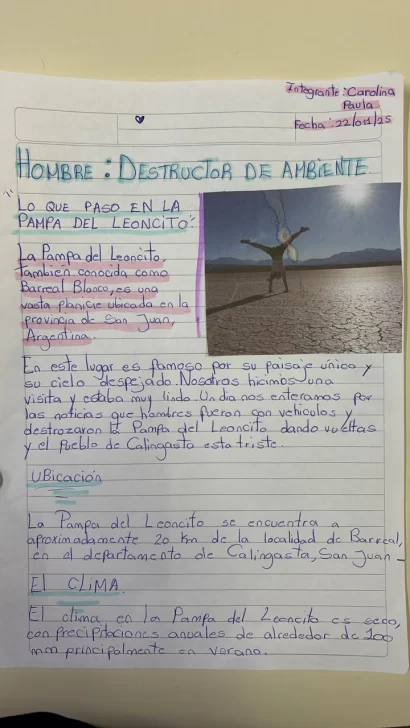 Integrante: Carolina
Paula
Fecha: 22/011/25
HOMBRE: DESTRUCTOR DE AMBIENTE
"LO QUE PASO EN LA
PAMPA DEL LEONCITO":
La Pampa del Leoncito,
tambien conocida como
Barreal Blanco, es una
vasta planicie ubicada en la
provincia de San Juan,
Argentina.
En este lugar es famoso por su paisaje único y
su cielo despejado. Nosotros hicimos una
visita y estaba muy lindo. Un dia nos enteramos por
las noticias que hombres fueron con vehiculos y
destrozaron la Pampa del Leoncito dando vueltas
y el pueblo de Calingasta esta triste.
UBicación
La Pampa del Leoncito se encuentra a
aproximadamente 20 km de la localidad de Barreal,
en el departamento de Calingasta, San Juan-
El CLiMA.
El clima en la Pampa del Leoncito es seco,
con precipitaciones anuales de alrededor de 100
mm principalmente en verano.